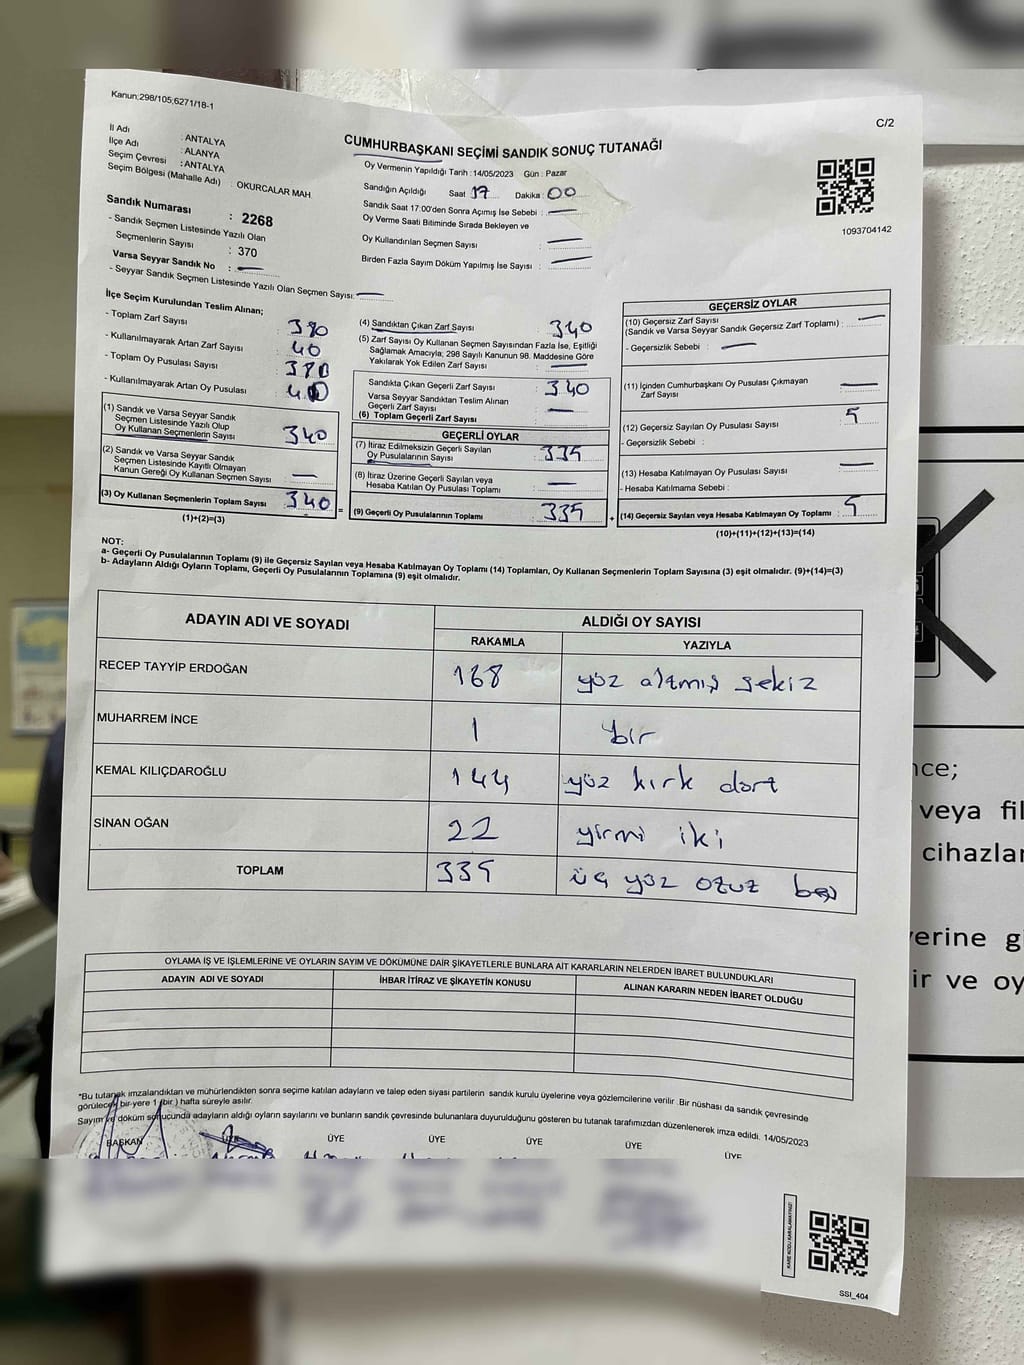 Kanun;298/105;6271/18-1
C/2
İl Adı : ANTALYA
İlçe Adı : ALANYA
Seçim Çevresi : ANTALYA
Seçim Bölgesi (Mahalle Adı) : OKURCALAR MAH.
CUMHURBAŞKANI SEÇİMİ SANDIK SONUÇ TUTANAĞI
Oy Vermenin Yapıldığı Tarih : 14/05/2023 Gün : Pazar
Sandığın Açıldığı Saat 17 Dakika : 00
Sandık Saat 17:00'den Sonra Açımış İse Sebebi : —
Oy Verme Saati Bitiminde Sırada Bekleyen ve
Oy Kullandırılan Seçmen Sayısı : —
Birden Fazla Sayım Döküm Yapılmış İse Sayısı : —
1093704142
Sandık Numarası : 2268
- Sandık Seçmen Listesinde Yazılı Olan
Seçmenlerin Sayısı : 370
Varsa Seyyar Sandık No : —
- Seyyar Sandık Seçmen Listesinde Yazılı Olan Seçmen Sayısı: —
İlçe Seçim Kurulundan Teslim Alınan;
- Toplam Zarf Sayısı 380
- Kullanılmayarak Artan Zarf Sayısı 40
- Toplam Oy Pusulası Sayısı 380
- Kullanılmayarak Artan Oy Pusulası 40
(1) Sandık ve Varsa Seyyar Sandık
Seçmen Listesinde Yazılı Olup
Oy Kullanan Seçmenlerin Sayısı 340
(2) Sandık ve Varsa Seyyar Sandık
Seçmen Listesinde Kayıtlı Olmayan
Kanun Gereği Oy Kullanan Seçmen Sayısı —
(3) Oy Kullanan Seçmenlerin Toplam Sayısı : 340
(1)+(2)=(3)
=
(4) Sandıktan Çıkan Zarf Sayısı : 340
(5) Zarf Sayısı Oy Kullanan Seçmen Sayısından Fazla İse, Eşitliği
Sağlamak Amacıyla; 298 Sayılı Kanunun 98. Maddesine Göre
Yakılarak Yok Edilen Zarf Sayısı : —
Sandıkta Çıkan Geçerli Zarf Sayısı : 340
Varsa Seyyar Sandıktan Teslim Alınan
Geçerli Zarf Sayısı : —
(6) Toplam Geçerli Zarf Sayısı
GEÇERLİ OYLAR
(7) İtiraz Edilmeksizin Geçerli Sayılan
Oy Pusulalarının Sayısı : 335
(8) İtiraz Üzerine Geçerli Sayılan veya
Hesaba Katılan Oy Pusulası Toplamı : —
(9) Geçerli Oy Pusulalarının Toplamı : 335
+
GEÇERSİZ OYLAR
(10) Geçersiz Zarf Sayısı
(Sandık ve Varsa Seyyar Sandık Geçersiz Zarf Toplamı) : —
- Geçersizlik Sebebi : —
(11) İçinden Cumhurbaşkanı Oy Pusulası Çıkmayan
Zarf Sayısı : —
(12) Geçersiz Sayılan Oy Pusulası Sayısı : 5
- Geçersizlik Sebebi :
(13) Hesaba Katılmayan Oy Pusulası Sayısı : —
- Hesaba Katılmama Sebebi :
(14) Geçersiz Sayılan veya Hesaba Katılmayan Oy Toplamı : 5
(10)+(11)+(12)+(13)=(14)
NOT:
a- Geçerli Oy Pusulalarının Toplamı (9) ile Geçersiz Sayılan veya Hesaba Katılmayan Oy Toplamı (14) Toplamları, Oy Kullanan Seçmenlerin Toplam Sayısına (3) eşit olmalıdır. (9)+(14)=(3)
b- Adayların Aldığı Oyların Toplamı, Geçerli Oy Pusulalarının Toplamına (9) eşit olmalıdır.
ADAYIN ADI VE SOYADI ALDIĞI OY SAYISI
RAKAMLA YAZIYLA
RECEP TAYYİP ERDOĞAN 168 yüz altmış sekiz
MUHARREM İNCE 1 bir
KEMAL KILIÇDAROĞLU 144 yüz kırk dört
SİNAN OĞAN 22 yirmi iki
TOPLAM 335 üç yüz otuz beş
OYLAMA İŞ VE İŞLEMLERİNE VE OYLARIN SAYIM VE DÖKÜMÜNE DAİR ŞİKAYETLERLE BUNLARA AİT KARARLARIN NELERDEN İBARET BULUNDUKLARI
ADAYIN ADI VE SOYADI İHBAR İTİRAZ VE ŞİKAYETİN KONUSU ALINAN KARARIN NEDEN İBARET OLDUĞU
*Bu tutanak imzalandıktan ve mühürlendikten sonra seçime katılan adayların ve talep eden siyasi partilerin sandık kurulu üyelerine veya gözlemcilerine verilir. Bir nüshası da sandık çevresinde
görülecek bir yere 1 (bir ) hafta süreyle asılır.
Sayım ve döküm sonucunda adayların aldığı oyların sayılarını ve bunların sandık çevresinde bulunanlara duyurulduğunu gösteren bu tutanak tarafımızdan düzenlenerek imza edildi. 14/05/2023
BAŞKAN ÜYE ÜYE ÜYE ÜYE ÜYE ÜYE
KARE KODU KARALAMAYINIZ!
SSI_404
nce;
veya fil
cihazlar
erine gi
ir ve oy